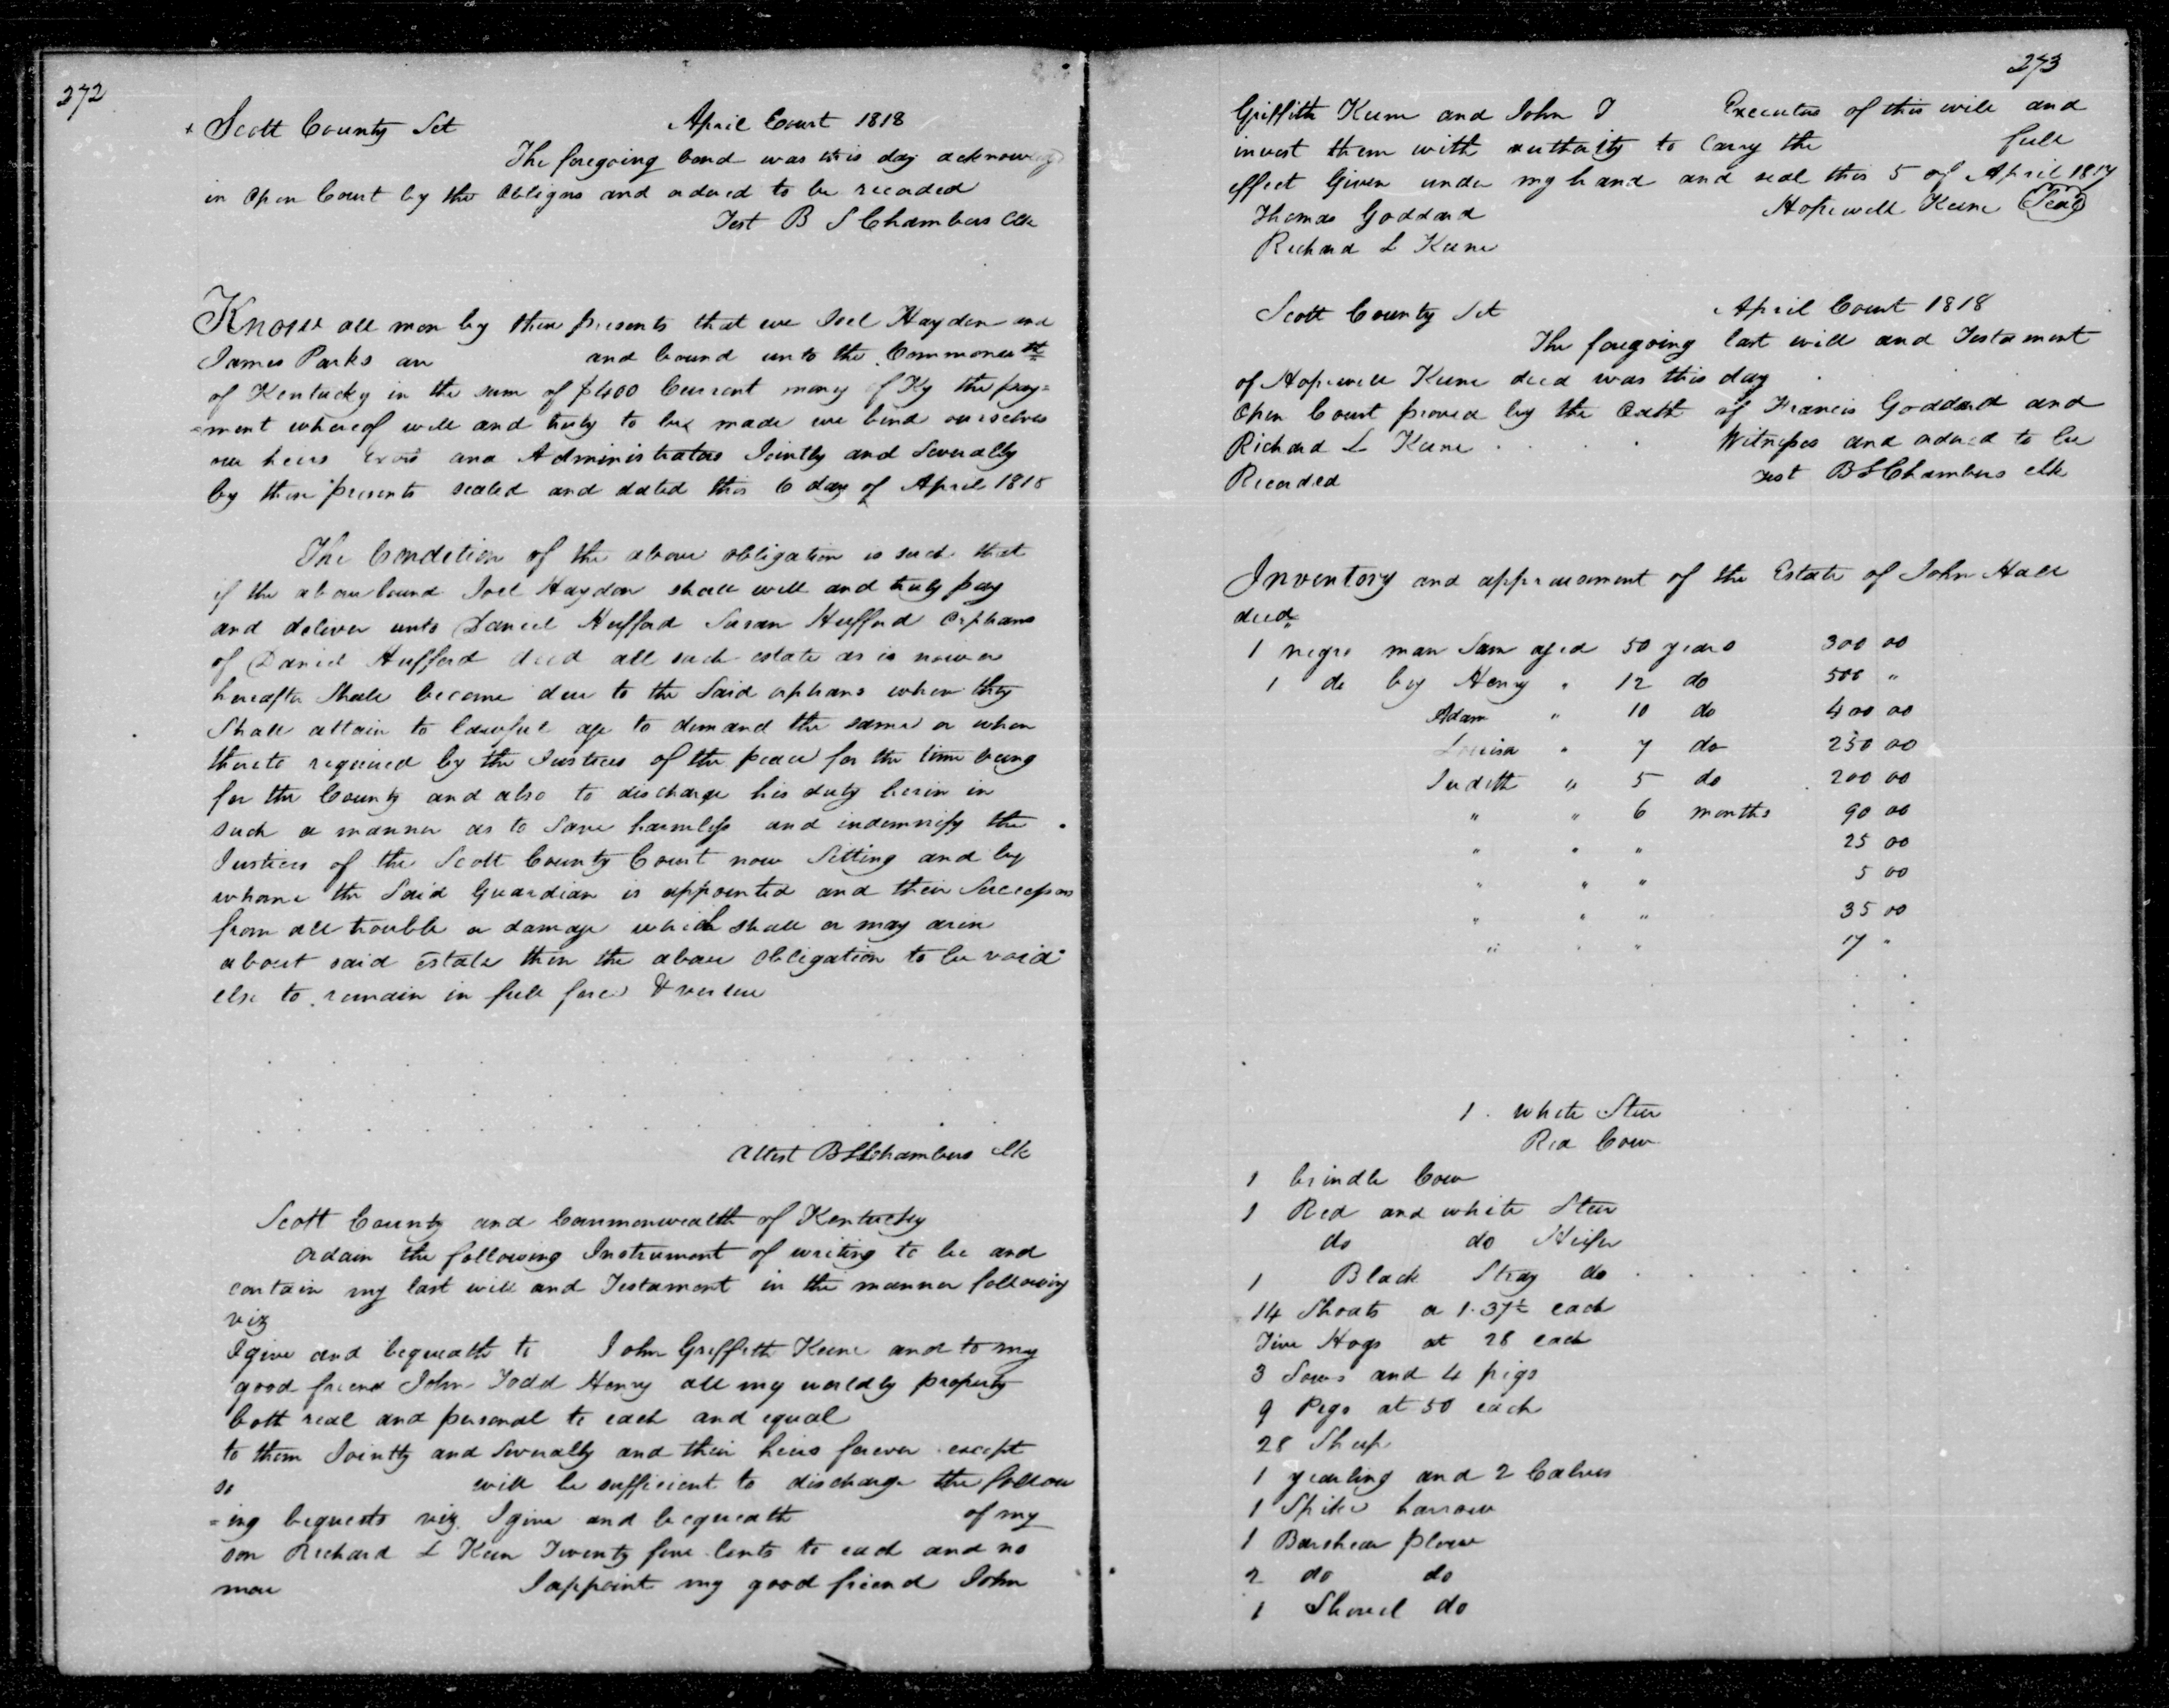 272
Scott County Sct April Court 1818
The foregoing bond was this day acknowledg
in open Court by the obligors and ordered to be recorded
Test B S Chambers Clk
Know all men by these presents that we Joel Hayden and
James Parks are and bound unto the Commonwth
of Kentucky in the sum of $400 Current money of Ky the pay=
=ment whereof will and truly to be made we bind ourselves
our heirs Exors and Administrators Jointly and Severally
by these presents sealed and dated this 6 day of April 1818
The Condition of the above obligation is such that
if the above bound Joel Haydon shall well and truly pay
and deliver unto Daniel Hufford Susan Hufford orphans
of Daniel Hufford decd all such estate as is now or
hereafter Shall become due to the Said orphans when they
Shall attain to lawful age to demand the same or when
thereto required by the Justices of the peace for the time being
for the County and also to discharge his duty herin in
such a manner as to Save harmless and indemnify the
Justices of the Scott County Court now Sitting and by
whome the Said Guardian is appointed and their Successors
from all trouble or damage which shall or may arise
about said Estate then the above obligation to be void
else to remain in full force & vertue
Attest B S Chambers Clk
Scott County and Commonwealth of Kentucky
ordain the following Instrument of writing to be and
contain my last will and Testament in the manner following
viz
I give and bequeath to John Griffith Keene and to my
good friend John Todd Henry all my worldly property
both real and personal to each and equal
to them Jointly and Severally and their heirs forever except
so will be sufficient to discharge the follow
=ing bequests viz I give and bequeath of my
son Richard L Keen Twenty five Cents to each and no
more I appoint my good friend John
273
Griffith Keene and John T Executors of this will and
invest them with authority to Carry the full
effect Given under my hand and seal this 5 of April 1817
Thomas Goddard Hopewell Keene Seal
Richard L Keene
Scott County Sct April Court 1818
The foregoing last will and Testament
of Hopewell Keene decd was this day
Open Court proved by the Oath of Francis Goddard and
Richard L Keene Witnesses and ordered to be
Recorded Test B S Chambers Clk
Inventory and appraisement of the Estate of John Hall
decd
1 negro man Sam aged 50 years 300 00
1 do boy Henry " 12 do 500 "
Adam " 10 do 400 00
Louisa " 7 do 250 00
Judith " 5 do 200 00
" " 6 months 90 00
" " " 25 00
" " " 5 00
" " " 35 00
" " " 17 "
1 White Steer
Red Cow
1 brindle Cow
1 Red and white Steer
do do Heifer
1 Black Stray do
14 Shoats a 1.37½ each
Five Hogs at 28 each
3 Sows and 4 pigs
9 Pigs at 50 each
28 Sheep
1 yearling and 2 Calves
1 Spike harrow
1 Barshear plow
2 do do
1 Shovel do